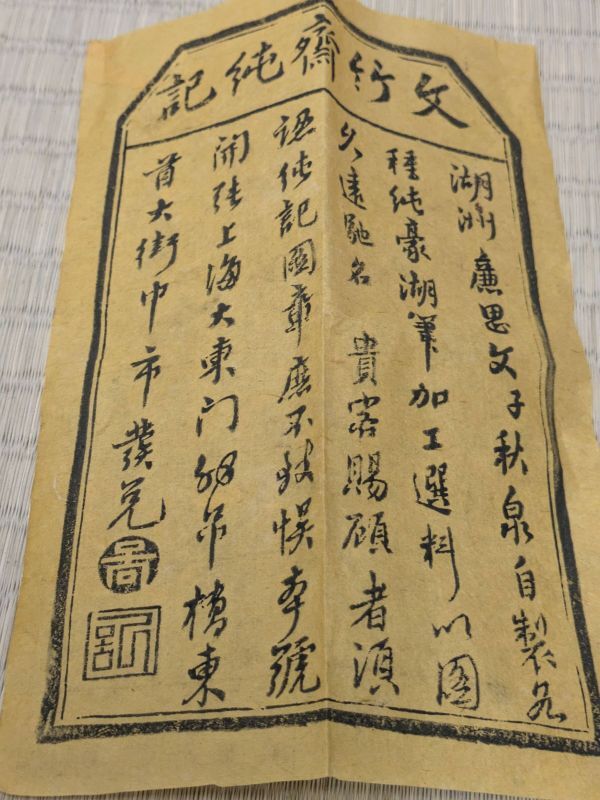 文行齋純記
湖洲廉思文子秋泉自製各
種純豪湖筆加工選料以圖
久遠馳名　貴客賜顧者須
認純記圖章庶不致悮本號
開張上海大東门外吊橋東
首大街中市發兑
圖
記